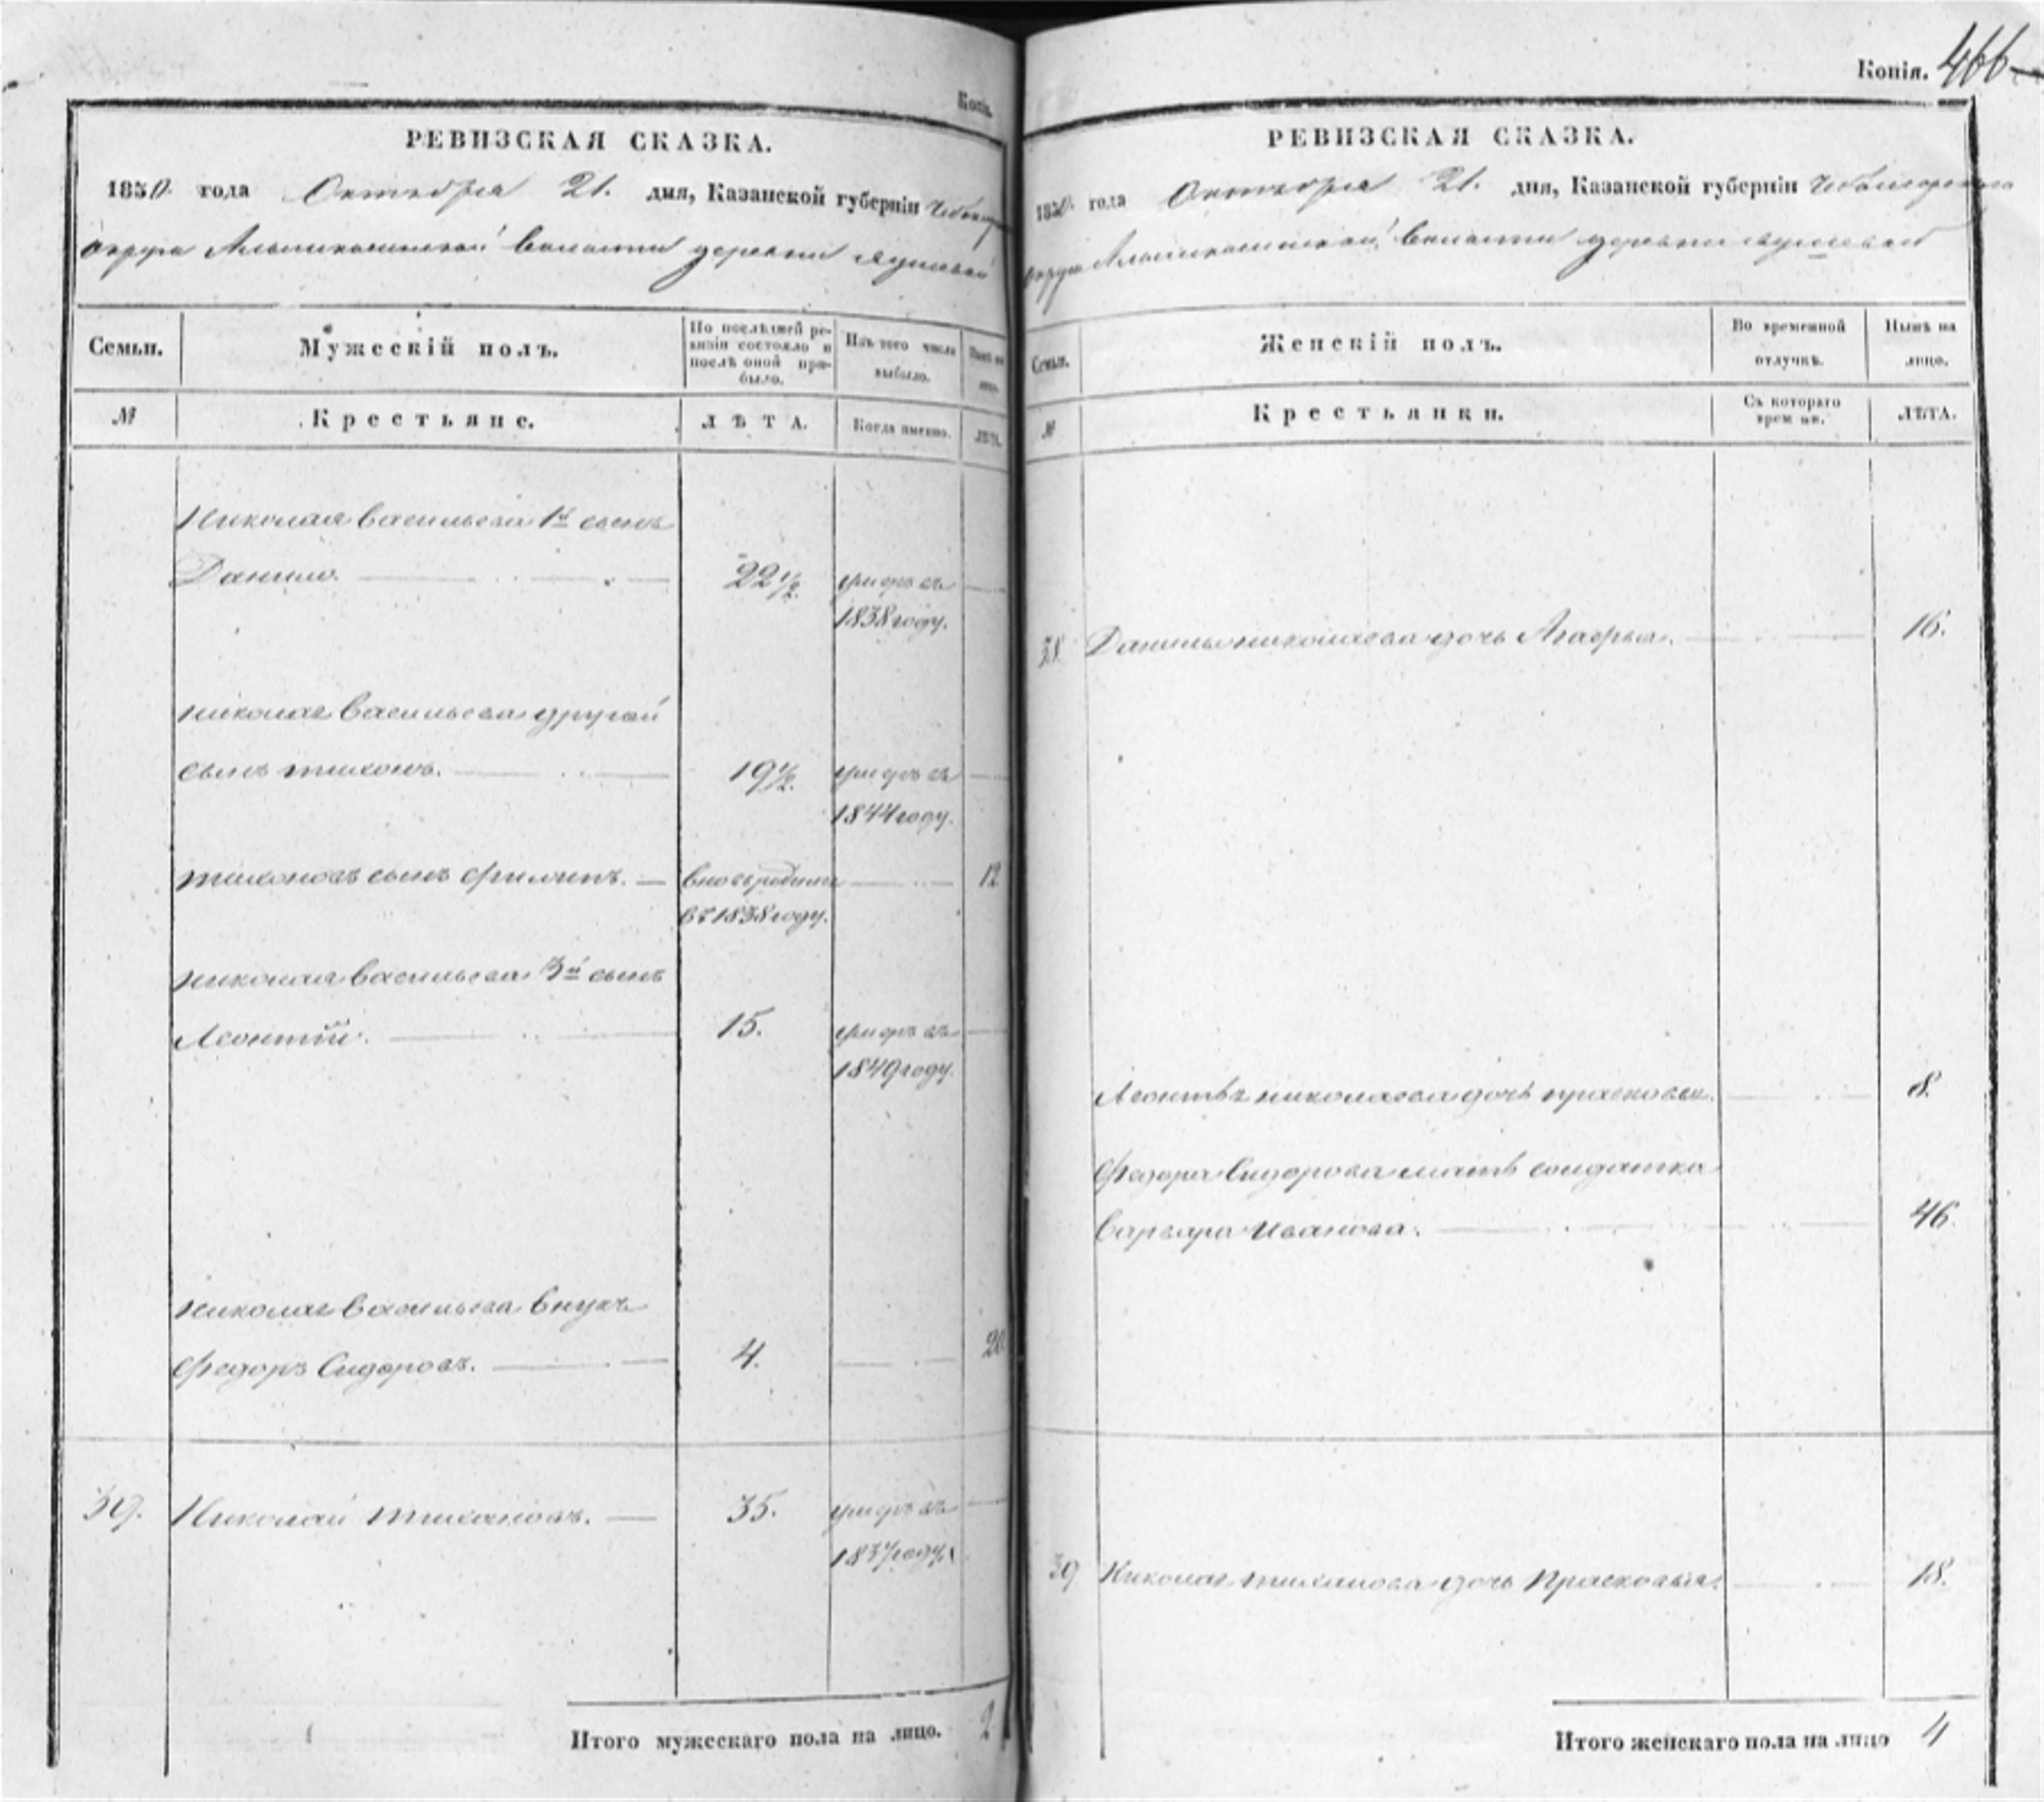 Копія.
РЕВИЗСКАЯ СКАЗКА.
1850 года Октября 21. дня, Казанской губерніи
округа Волости деревни
Семьи.
Мужескій полъ.
По послѣдней ре-
визіи состояло и
послѣ оной при-
было.
Изъ того числа
выбыло.
№
Крестьяне.
ЛѢТА.
Когда именно.
ЛѢТА.
Николая Васильева 1й сынъ
Данило.
22½
умеръ въ
1838 году.
Николая Васильева другой
сынъ Тихонъ.
19½
умеръ въ
1844 году.
Тихоновъ сынъ Филипъ.
вновь рожден
въ 1838 году.
12
Николая Васильева 3й сынъ
Леонтій.
15.
умеръ въ
1849 году.
Николая Васильева внукъ
Федоръ Сидоровъ.
4.
20
39.
Николай Тихановъ.
35.
умеръ въ
1837 году
Итого мужескаго пола на лицо.
2
Копія. 466
РЕВИЗСКАЯ СКАЗКА.
1850 года Октября 21. дня, Казанской губерніи
округа Волости деревни
Семьи.
Женскій полъ.
Во временной
отлучкѣ.
Нынѣ на
лицо.
№
Крестьянки.
Съ котораго
врем ни.
ЛѢТА.
38
Данилы Николаева дочь Агафья.
16.
Леонтья Николаева дочь Прасковья.
8.
Федора Сидорова мать солдатка
Варвара Иванова.
46
39
Николая Тиханова дочь Прасковья.
18.
Итого женскаго пола на лицо
4